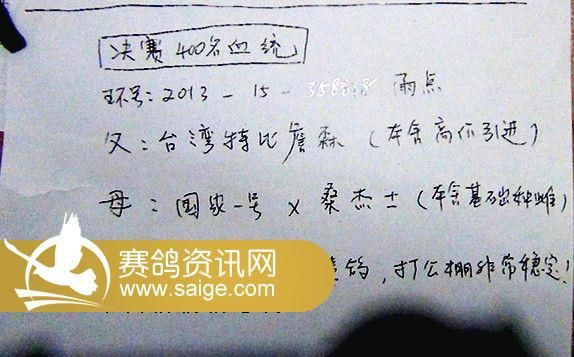 决赛400名血统
环号:2013-15- 雨点
父:台湾特比詹森(本舍高价引进)
母:国家一号x桑杰士(本舍基础种雌)
鸽,打公棚非常稳定!
赛鸽资讯网
www.saige.com